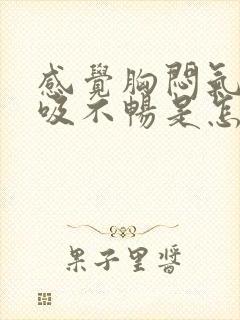 感覺胸悶氣
吸不暢是怎
果子里醬